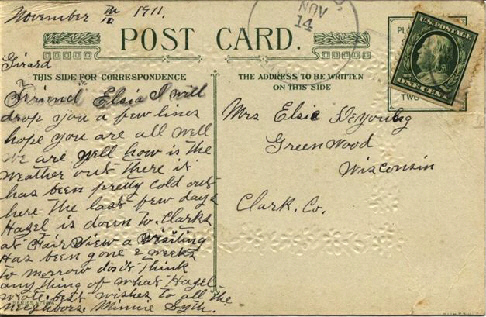 November 12th 1911.
NOV
14
U.S. POSTAGE
ONE CENT
POST CARD.
Girard
THIS SIDE FOR CORRESPONDENCE
THE ADDRESS TO BE WRITTEN
ON THIS SIDE
TWO
Friend Elsie I will
drop you a few lines
hope you are all well
we are well how is the
weather out there it
has been pretty cold out
here the last few days
Hazel is down to Clarks
at Fairview a visiting
Has been gone 2 weeks
to morrow dos't think
any thing of what Hazel
wrote best wishes to all the
neighbors. Minnie
Mrs Elsie DeYoung
Greenwood
Wisconsin
Clark. Co.